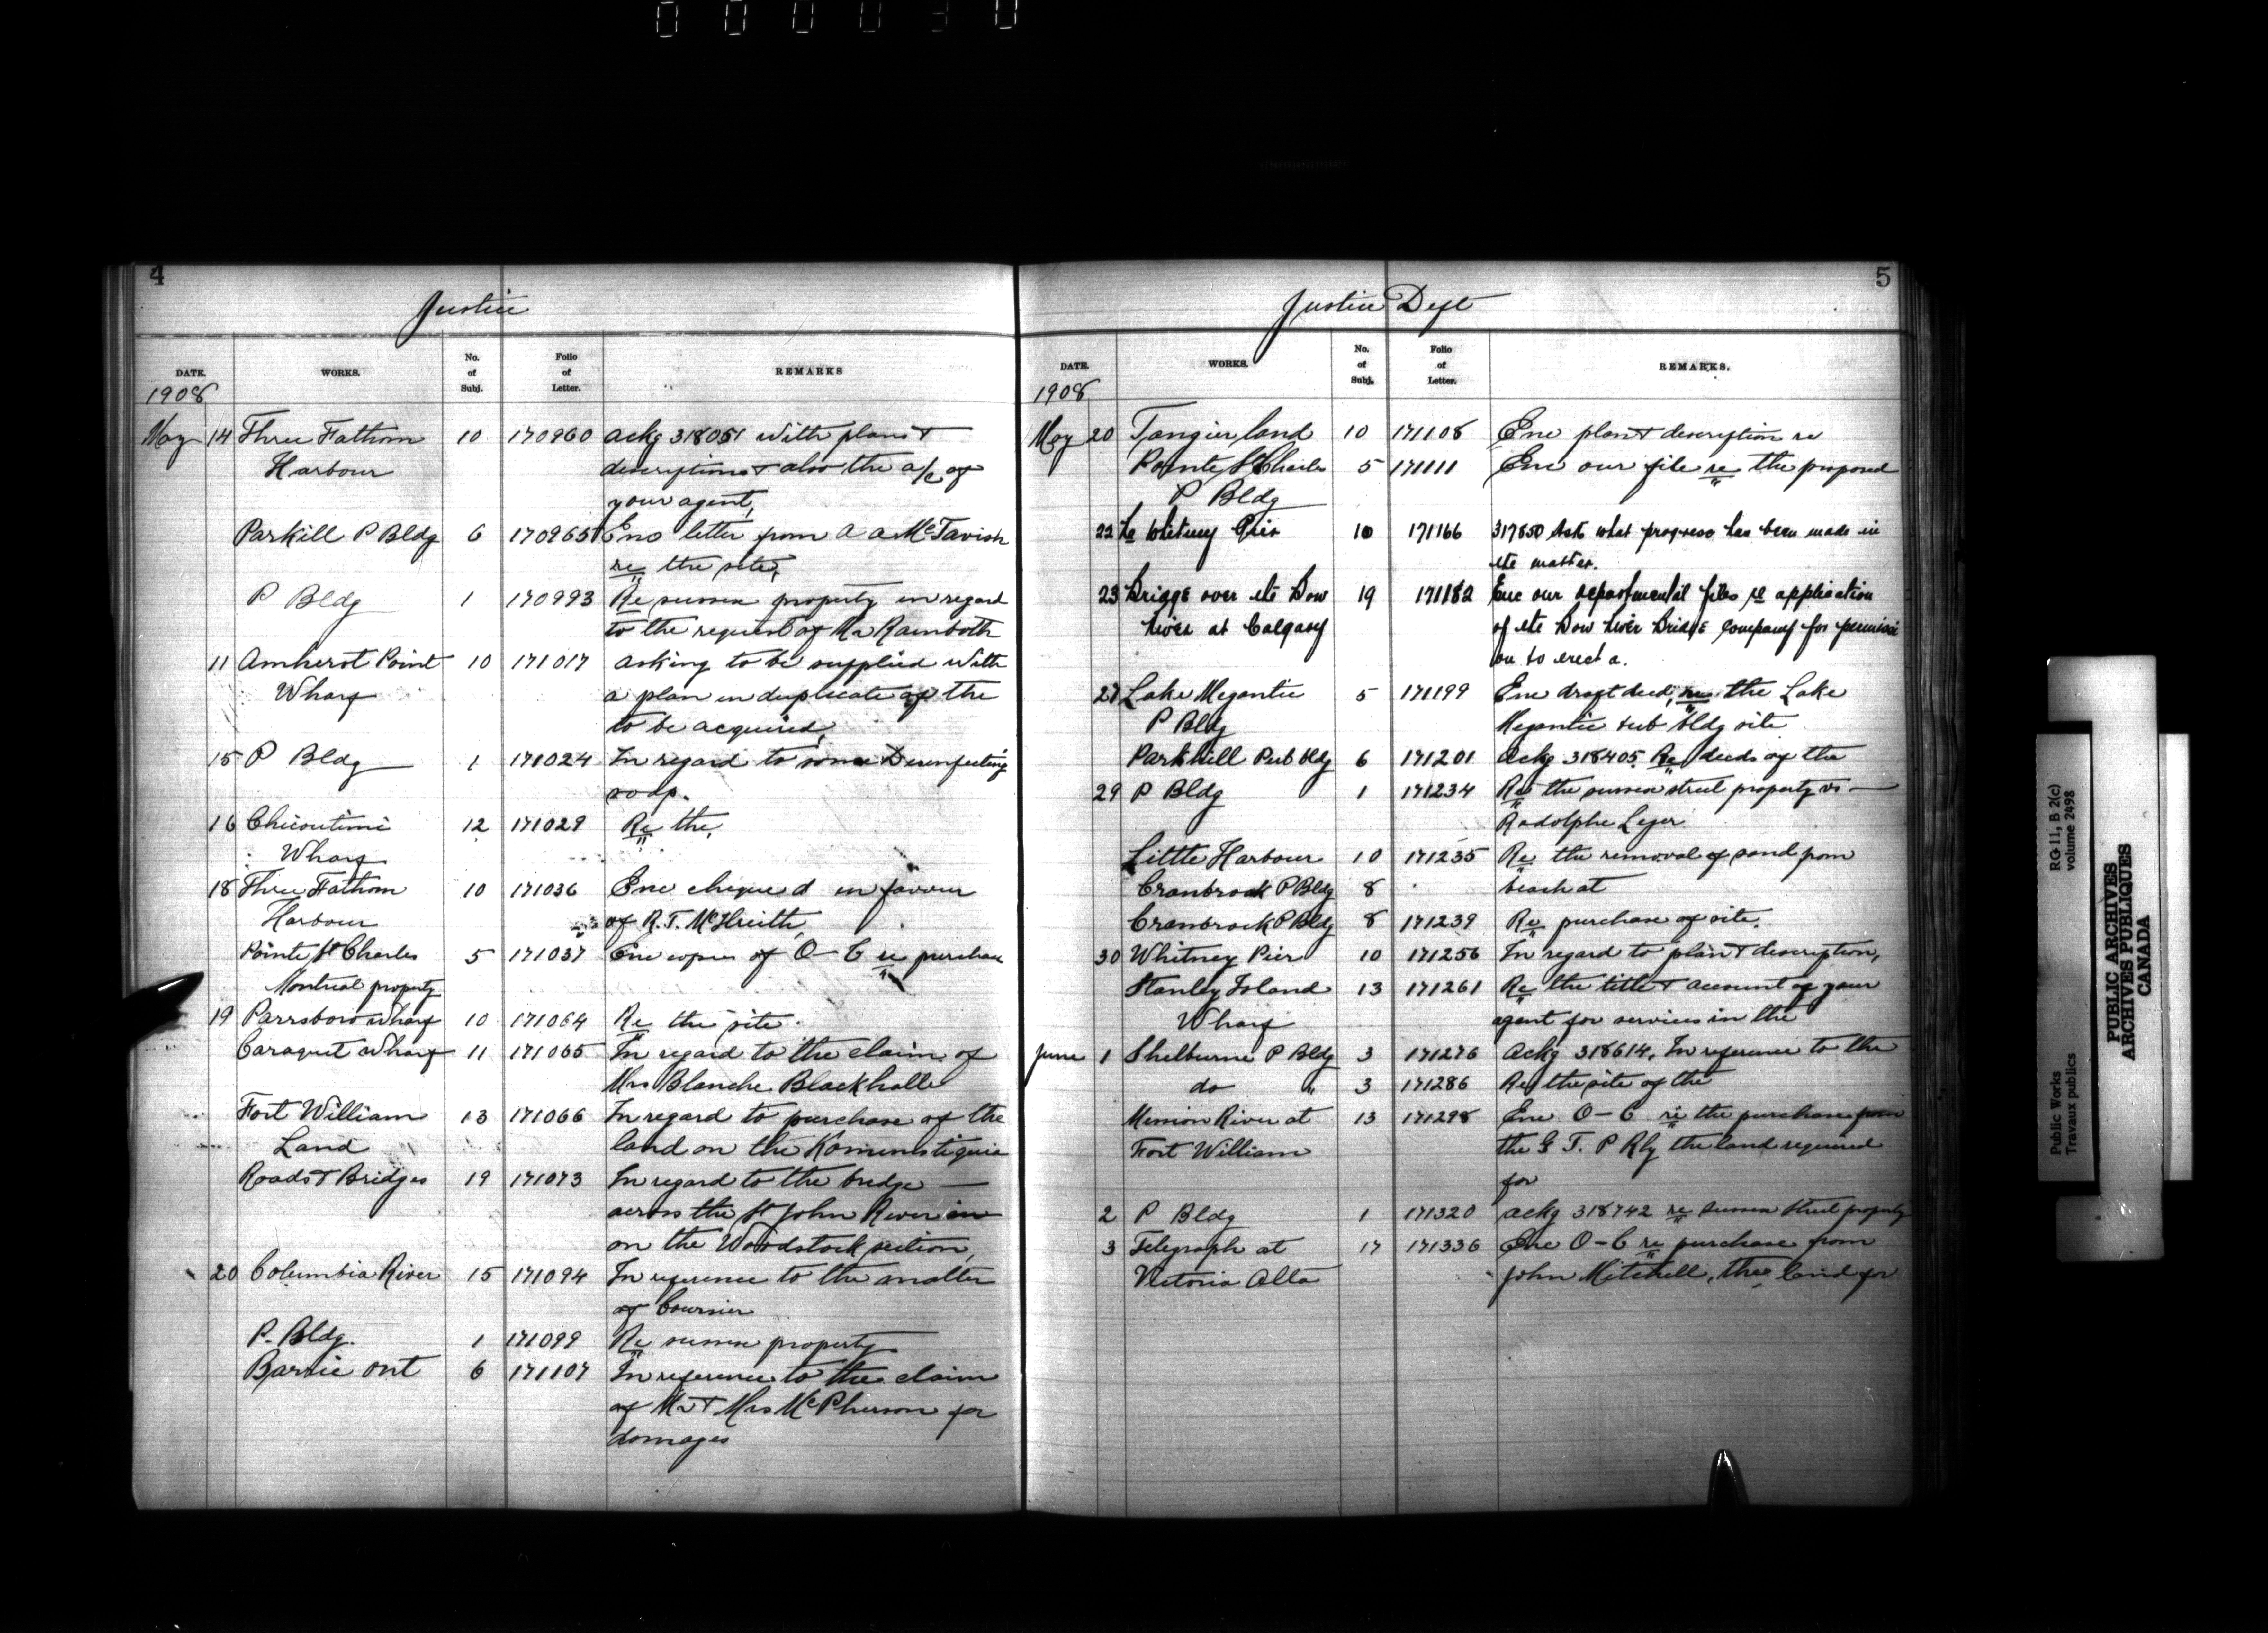 0 0 0 0 3 0
4
Justice
DATE. WORKS. No. of Subj. Folio of Letter. REMARKS
1908
May 14 Three Fathom 10 170960 Ackg 318051 with plans &
Harbour descriptions & also the a/c of
your agent,
Parkill P Bldg 6 170965 Enc letter from A A McTavish
re the site,
P Bldg 1 170993 Re sussex property in regard
to the request of Mr Rainboth
11 Amherst Point 10 171017 asking to be supplied with
Wharf a plan in duplicate of the
to be acquired,
15 P Bldg 1 171024 In regard to some Disinfecting
soap.
16 Chicoutimi 12 171029 Re the,
Wharf
18 Three Fathom 10 171036 Enc cheque d in favour
Harbour of R. T. McIlreith,
Pointe St Charles 5 171037 Enc copies of O-C re purchase
Montreal property
19 Parrsboro wharf 10 171064 Re the site.
Caraquet wharf 11 171065 In regard to the claim of
Mrs Blanche Blackhalle
Fort William 13 171066 In regard to purchase of the
Land land on the Kaministiquia
Roads & Bridges 19 171073 In regard to the bridge
across the St John River in
on the Woodstock section,
20 Columbia River 15 171094 In reference to the matter
of Coursier
P. Bldg. 1 171099 Re sussex property
Barrie Ont 6 171107 In reference to the claim
of Mr & Mrs McPherson for
damages
5
Justice Dept
DATE. WORKS. No. of Subj. Folio of Letter. REMARKS.
1908
May 20 Tangier land 10 171108 Enc plan & description re
Pointe St Charles 5 171111 Enc our file re the proposed
P Bldg
22 Whitney Pier 10 171166 317850 Ask what progress has been made in
the matter.
23 Bridge over the Bow 19 171182 Enc our departmental files re application
River at Calgary of the Bow River Bridge Company for permissi
on to erect a.
27 Lake Megantic 5 171199 Enc draft deed, re the Lake
P Bldg Megantic pub bldg site
Parkhill Pub bldg 6 171201 Ackg 318405. Re deeds of the
29 P Bldg 1 171234 Re the sussex street property vs
Radolphe Leger
Little Harbour 10 171235 Re the removal of sand from
Cranbrook P Bldg 8 beach at
Cranbrook P Bldg 8 171239 Re purchase of site.
30 Whitney Pier 10 171256 In regard to plan & description,
Stanley Island 13 171261 Re the title & account of your
Wharf agent for services in the
June 1 Shelburne P Bldg 3 171276 Ackg 318614. In reference to the
do " 3 171286 Re the site of the
Mission River at 13 171298 Enc O-C re the purchase from
Fort William the G T. P Rly the land required
for
2 P Bldg 1 171320 Ackg 318742 re sussex street property
3 Telegraph at 17 171336 Enc O-C re purchase from
Victoria Alta John Mitchell, the land for
Public Works
Travaux publics
RG 11, B 2(c)
volume 2498
PUBLIC ARCHIVES
ARCHIVES PUBLIQUES
CANADA